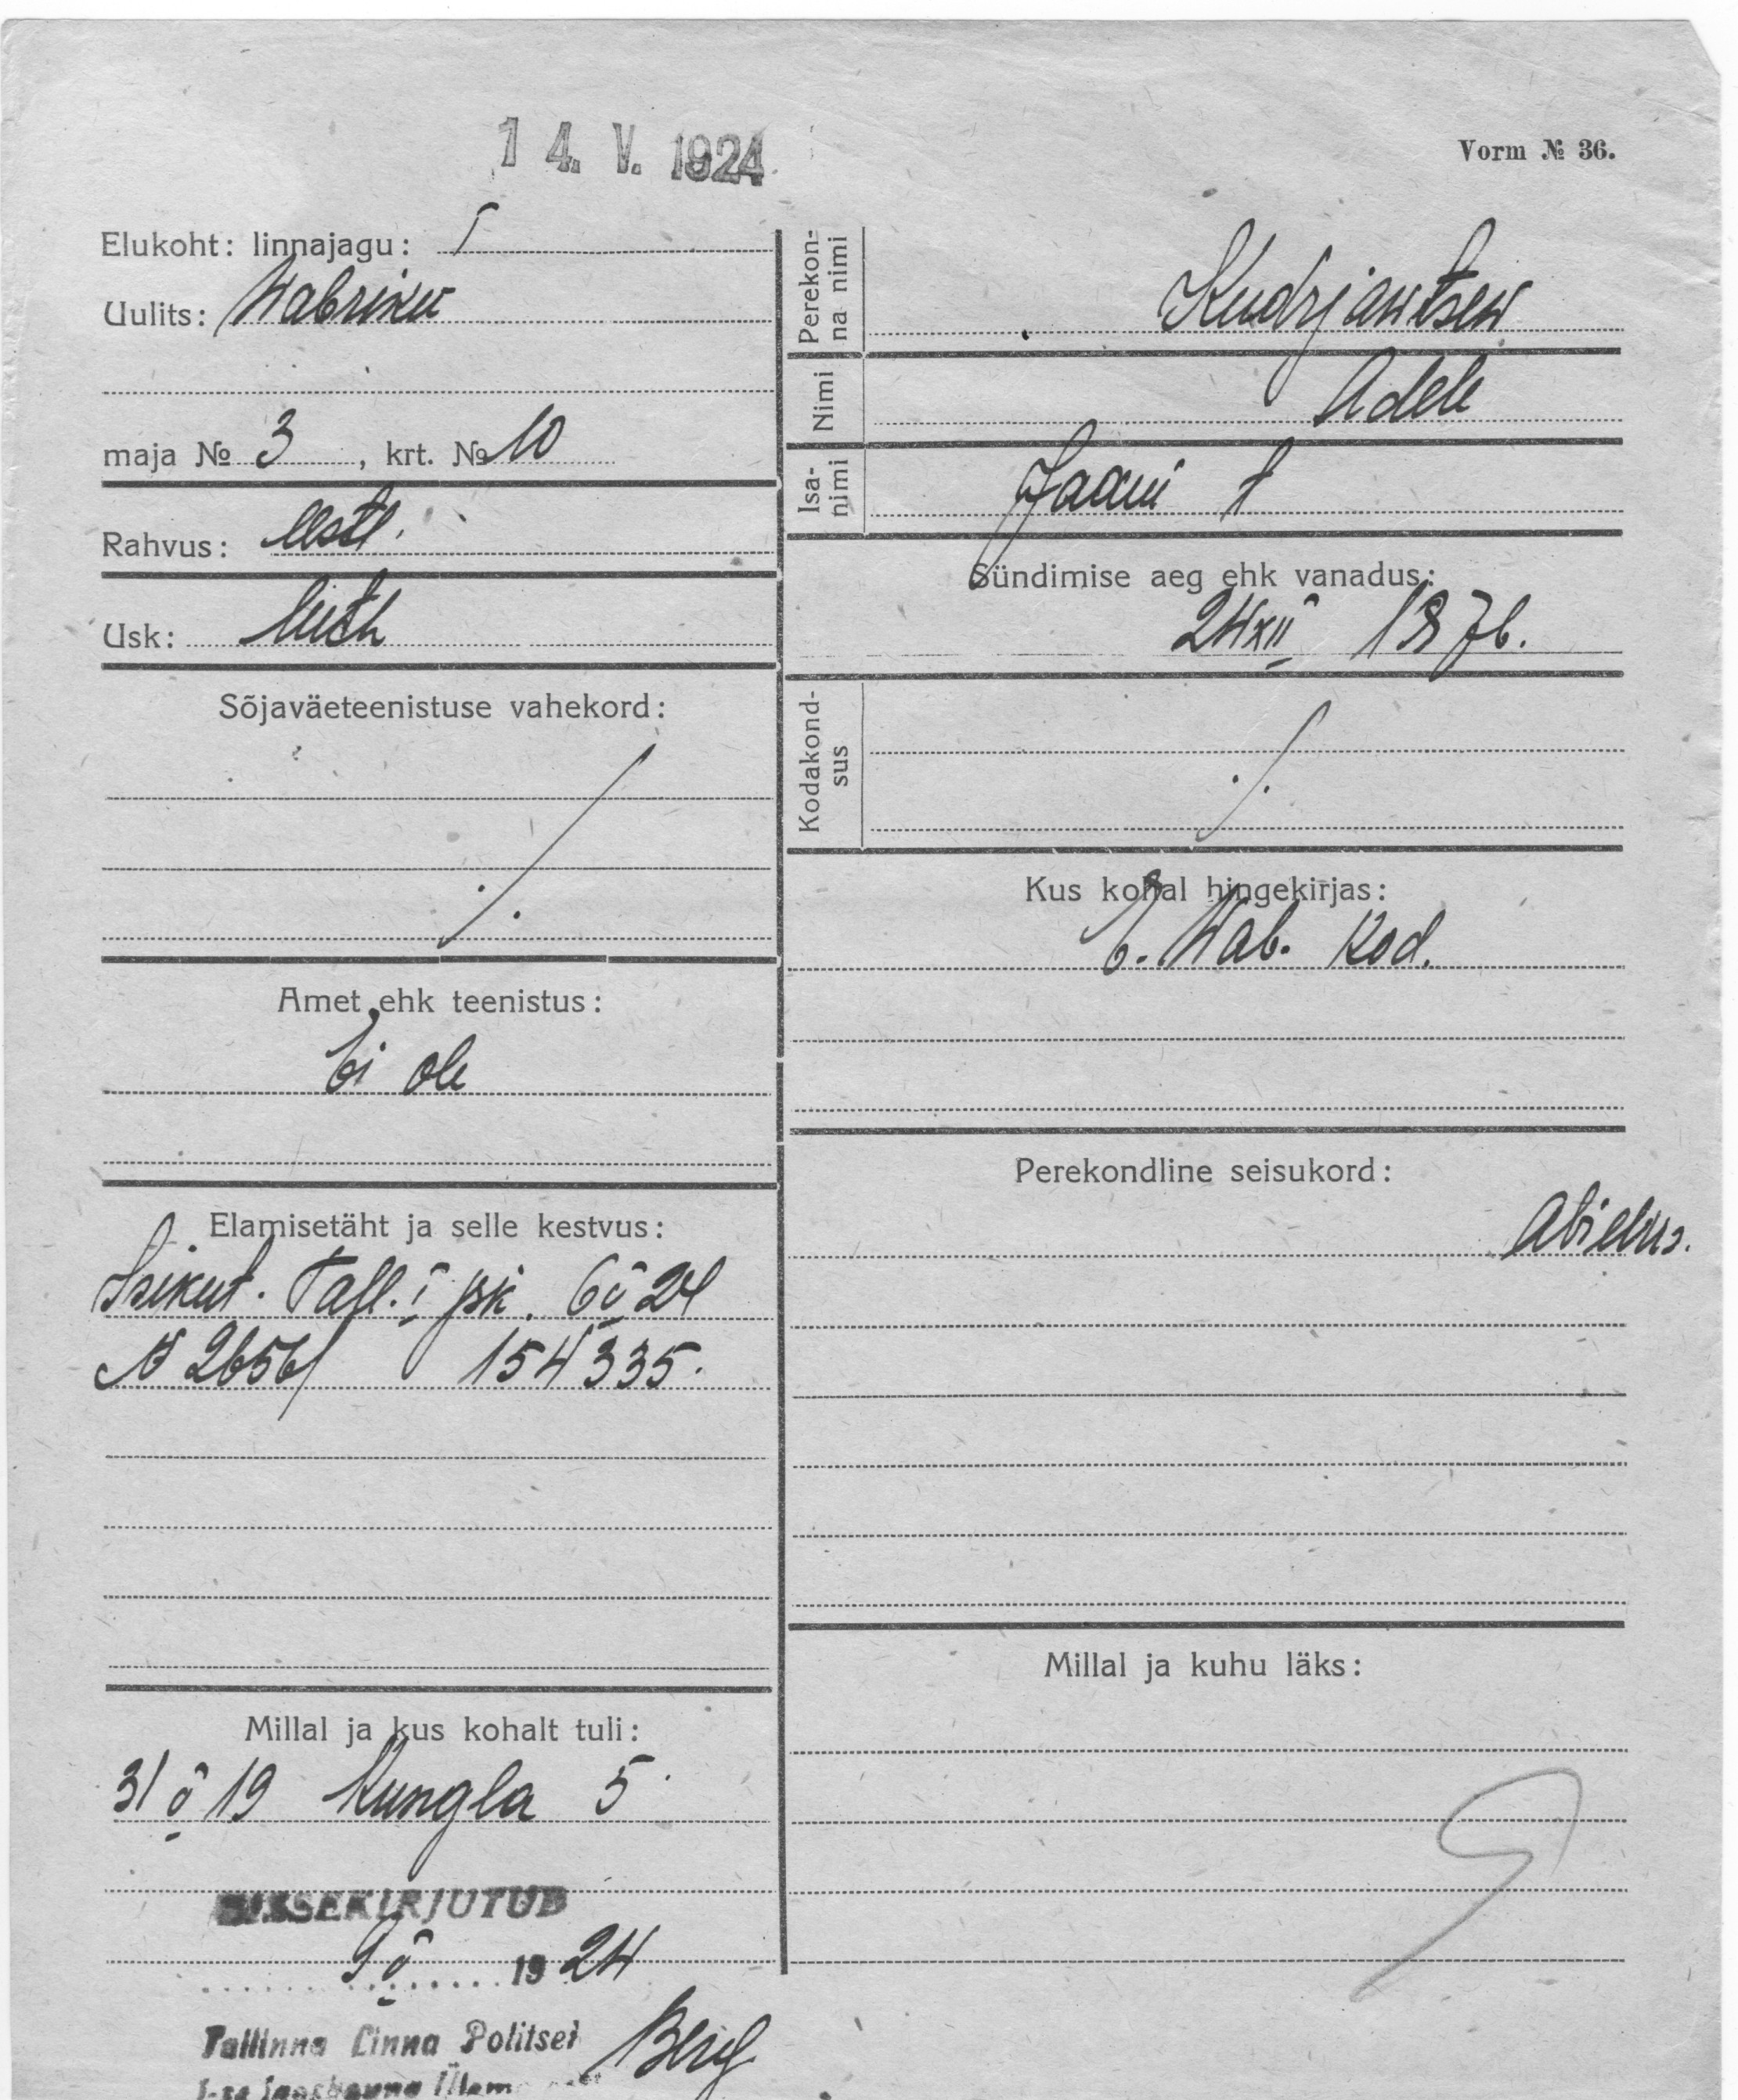 14. V. 1924
Vorm № 36.
Elukoht: linnajagu: I
Uulits: Wabriku
maja № 3, krt. № 10
Rahvus: eestl.
Usk: luth
Sõjaväeteenistuse vahekord:
Amet ehk teenistus:
Ei ole
Elamisetäht ja selle kestvus:
Isikut. Tall. I jsk. 6 V 24
№ 2656/ 154335.
Millal ja kus kohalt tuli:
31 V 19 Kungla 5
SISSEKIRJUTUD
9 V 1924
Tallinna Linna Politsei Berg
I-se Jaoskonna Ülem
Perekonna- nimi
Kudrjawtsew
Nimi
Adele
Isa-
nimi
Jaani t
Sündimise aeg ehk vanadus:
24 XII 1876.
Kodakond-
sus
Kus kohal hingekirjas:
E. Wab. Kod.
Perekondline seisukord:
abielus.
Millal ja kuhu läks: